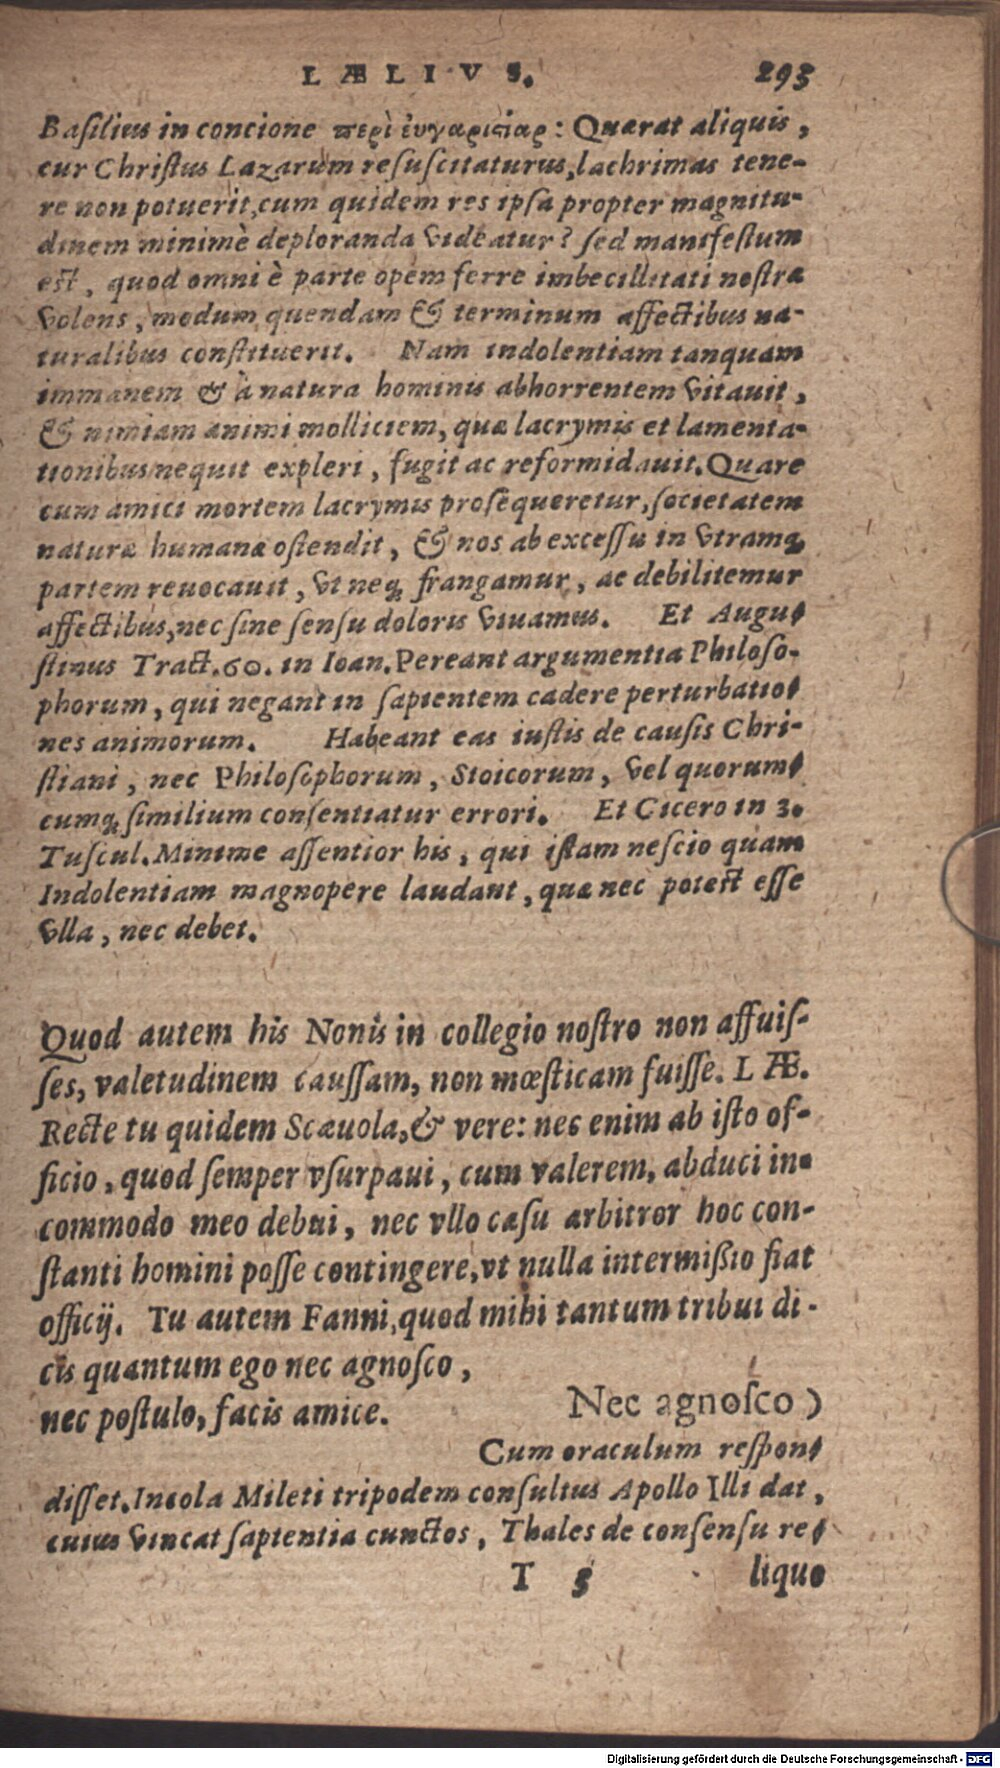 LÆLIVS. 293
Baſilius in concione περὶ ἐυχαριςίας: Quærat aliquis,
cur Chriſtus Lazarum reſuſcitaturus, lachrimas tene-
re non potuerit, cum quidem res ipſa propter magnitu-
dinem minimè deploranda videatur? ſed manifeſtum
est, quod omni è parte opem ferre imbecillitati noſtræ
volens, modum quendam & terminum affectibus na-
turalibus conſtituerit. Nam indolentiam tanquam
immanem & à natura hominis abhorrentem vitauit,
& nimiam animi molliciem, quæ lacrymis et lamenta-
tionibus nequit expleri, fugit ac reformidauit. Quare
cum amici mortem lacrymis proſequeretur, ſocietatem
naturæ humanæ oſtendit, & nos ab exceſſu in vtramq́;
partem reuocauit, vt neq; frangamur, ac debilitemur
affectibus, nec ſine ſenſu doloris viuamus. Et Augu-
ſtinus Tract. 60. in Ioan. Pereant argumentia Philoſo-
phorum, qui negant in ſapientem cadere perturbatio-
nes animorum. Habeant eas iuſtis de cauſis Chri-
ſtiani, nec Philoſophorum, Stoicorum, vel quorum-
cumq; ſimilium conſentiatur errori. Et Cicero in 3.
Tuſcul. Minime aſſentior his, qui iſtam neſcio quam
Indolentiam magnopere laudant, quæ nec potest eſſe
vlla, nec debet.
Quod autem his Nonis in collegio noſtro non affuiſ-
ſes, valetudinem cauſſam, non mœſticam fuiſſe. LÆ.
Recte tu quidem Scæuola, & vere: nec enim ab iſto of-
ficio, quod ſemper vſurpaui, cum valerem, abduci in-
commodo meo debui, nec vllo caſu arbitror hoc con-
ſtanti homini poſſe contingere, vt nulla intermißio fiat
officij. Tu autem Fanni, quod mihi tantum tribui di-
cis quantum ego nec agnoſco,
nec poſtulo, facis amice.
Nec agnoſco)
Cum oraculum reſpon-
diſſet. Incola Mileti tripodem conſultus Apollo Illi dat,
cuius vincat ſapientia cunctos, Thales de conſenſu re-
T 5 liquo
Digitalisierung gefördert durch die Deutsche Forschungsgemeinschaft - DFG